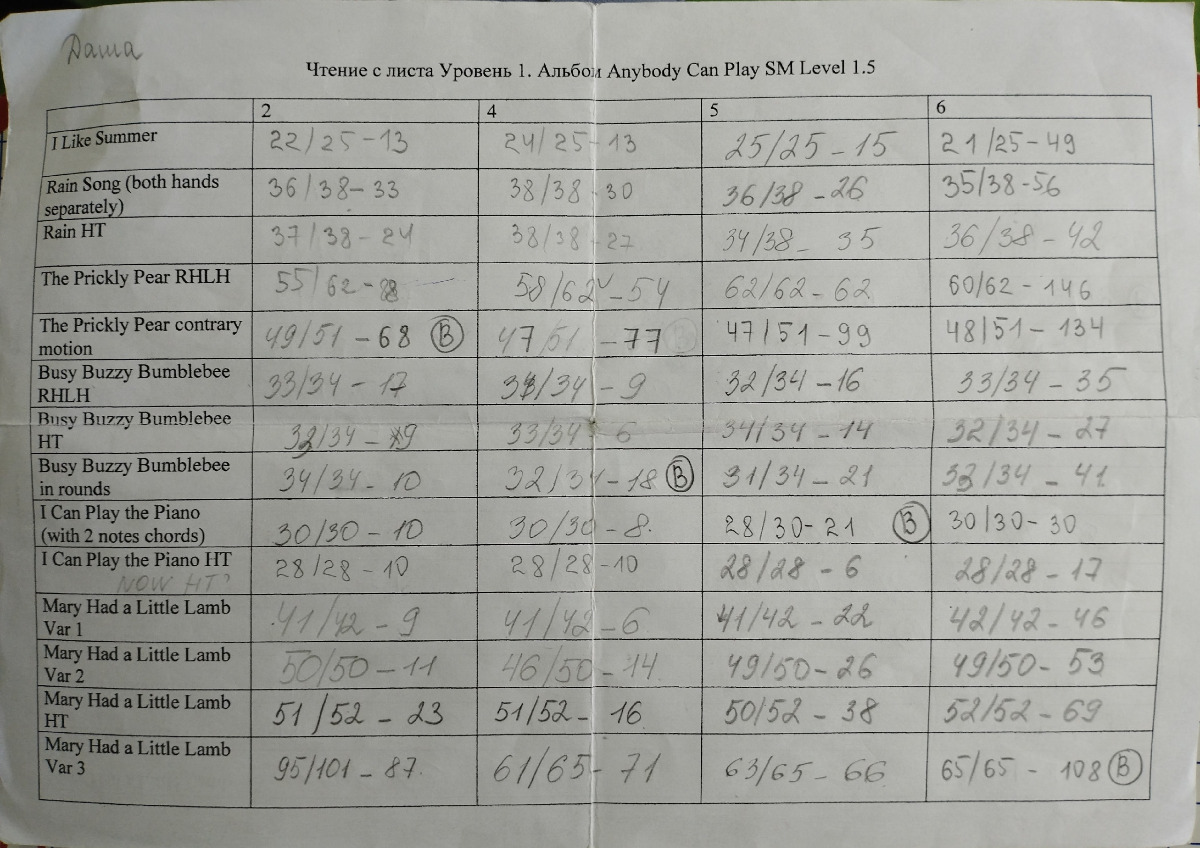 Даша
Чтение с листа Уровень 1. Альбом Anybody Can Play SM Level 1.5
2 4 5 6
I Like Summer 22/25-13 24/25-13 25/25-15 21/25-49
Rain Song (both hands separately) 36/38-33 38/38-30 36/38-26 35/38-56
Rain HT 37/38-24 38/38-27 34/38- 35 36/38-42
The Prickly Pear RHLH 55/62-88 58/62-54 62/62-62 60/62-146
The Prickly Pear contrary motion 49/51-68 B 47/51-77 47/51-99 48/51-134
Busy Buzzy Bumblebee RHLH 33/34-17 /34-9 32/34-16 33/34-35
Busy Buzzy Bumblebee HT /34-9 33/34-6 34/34-14 32/34-27
Busy Buzzy Bumblebee in rounds 34/34-10 32/34-18 B 31/34-21 /34-41
I Can Play the Piano (with 2 notes chords) 30/30-10 30/30-8. 28/30-21 B 30/30-30
I Can Play the Piano HT NOW HT? 28/28-10 28/28-10 28/28-6 28/28-17
Mary Had a Little Lamb Var 1 41/42-9 41/42-6 41/42-22 42/42-46
Mary Had a Little Lamb Var 2 50/50-11 46/50-14 49/50-26 49/50-53
Mary Had a Little Lamb HT 51/52-23 51/52-16 50/52-38 52/52-69
Mary Had a Little Lamb Var 3 95/101-87. 61/65-71 63/65-66 65/65-108 B